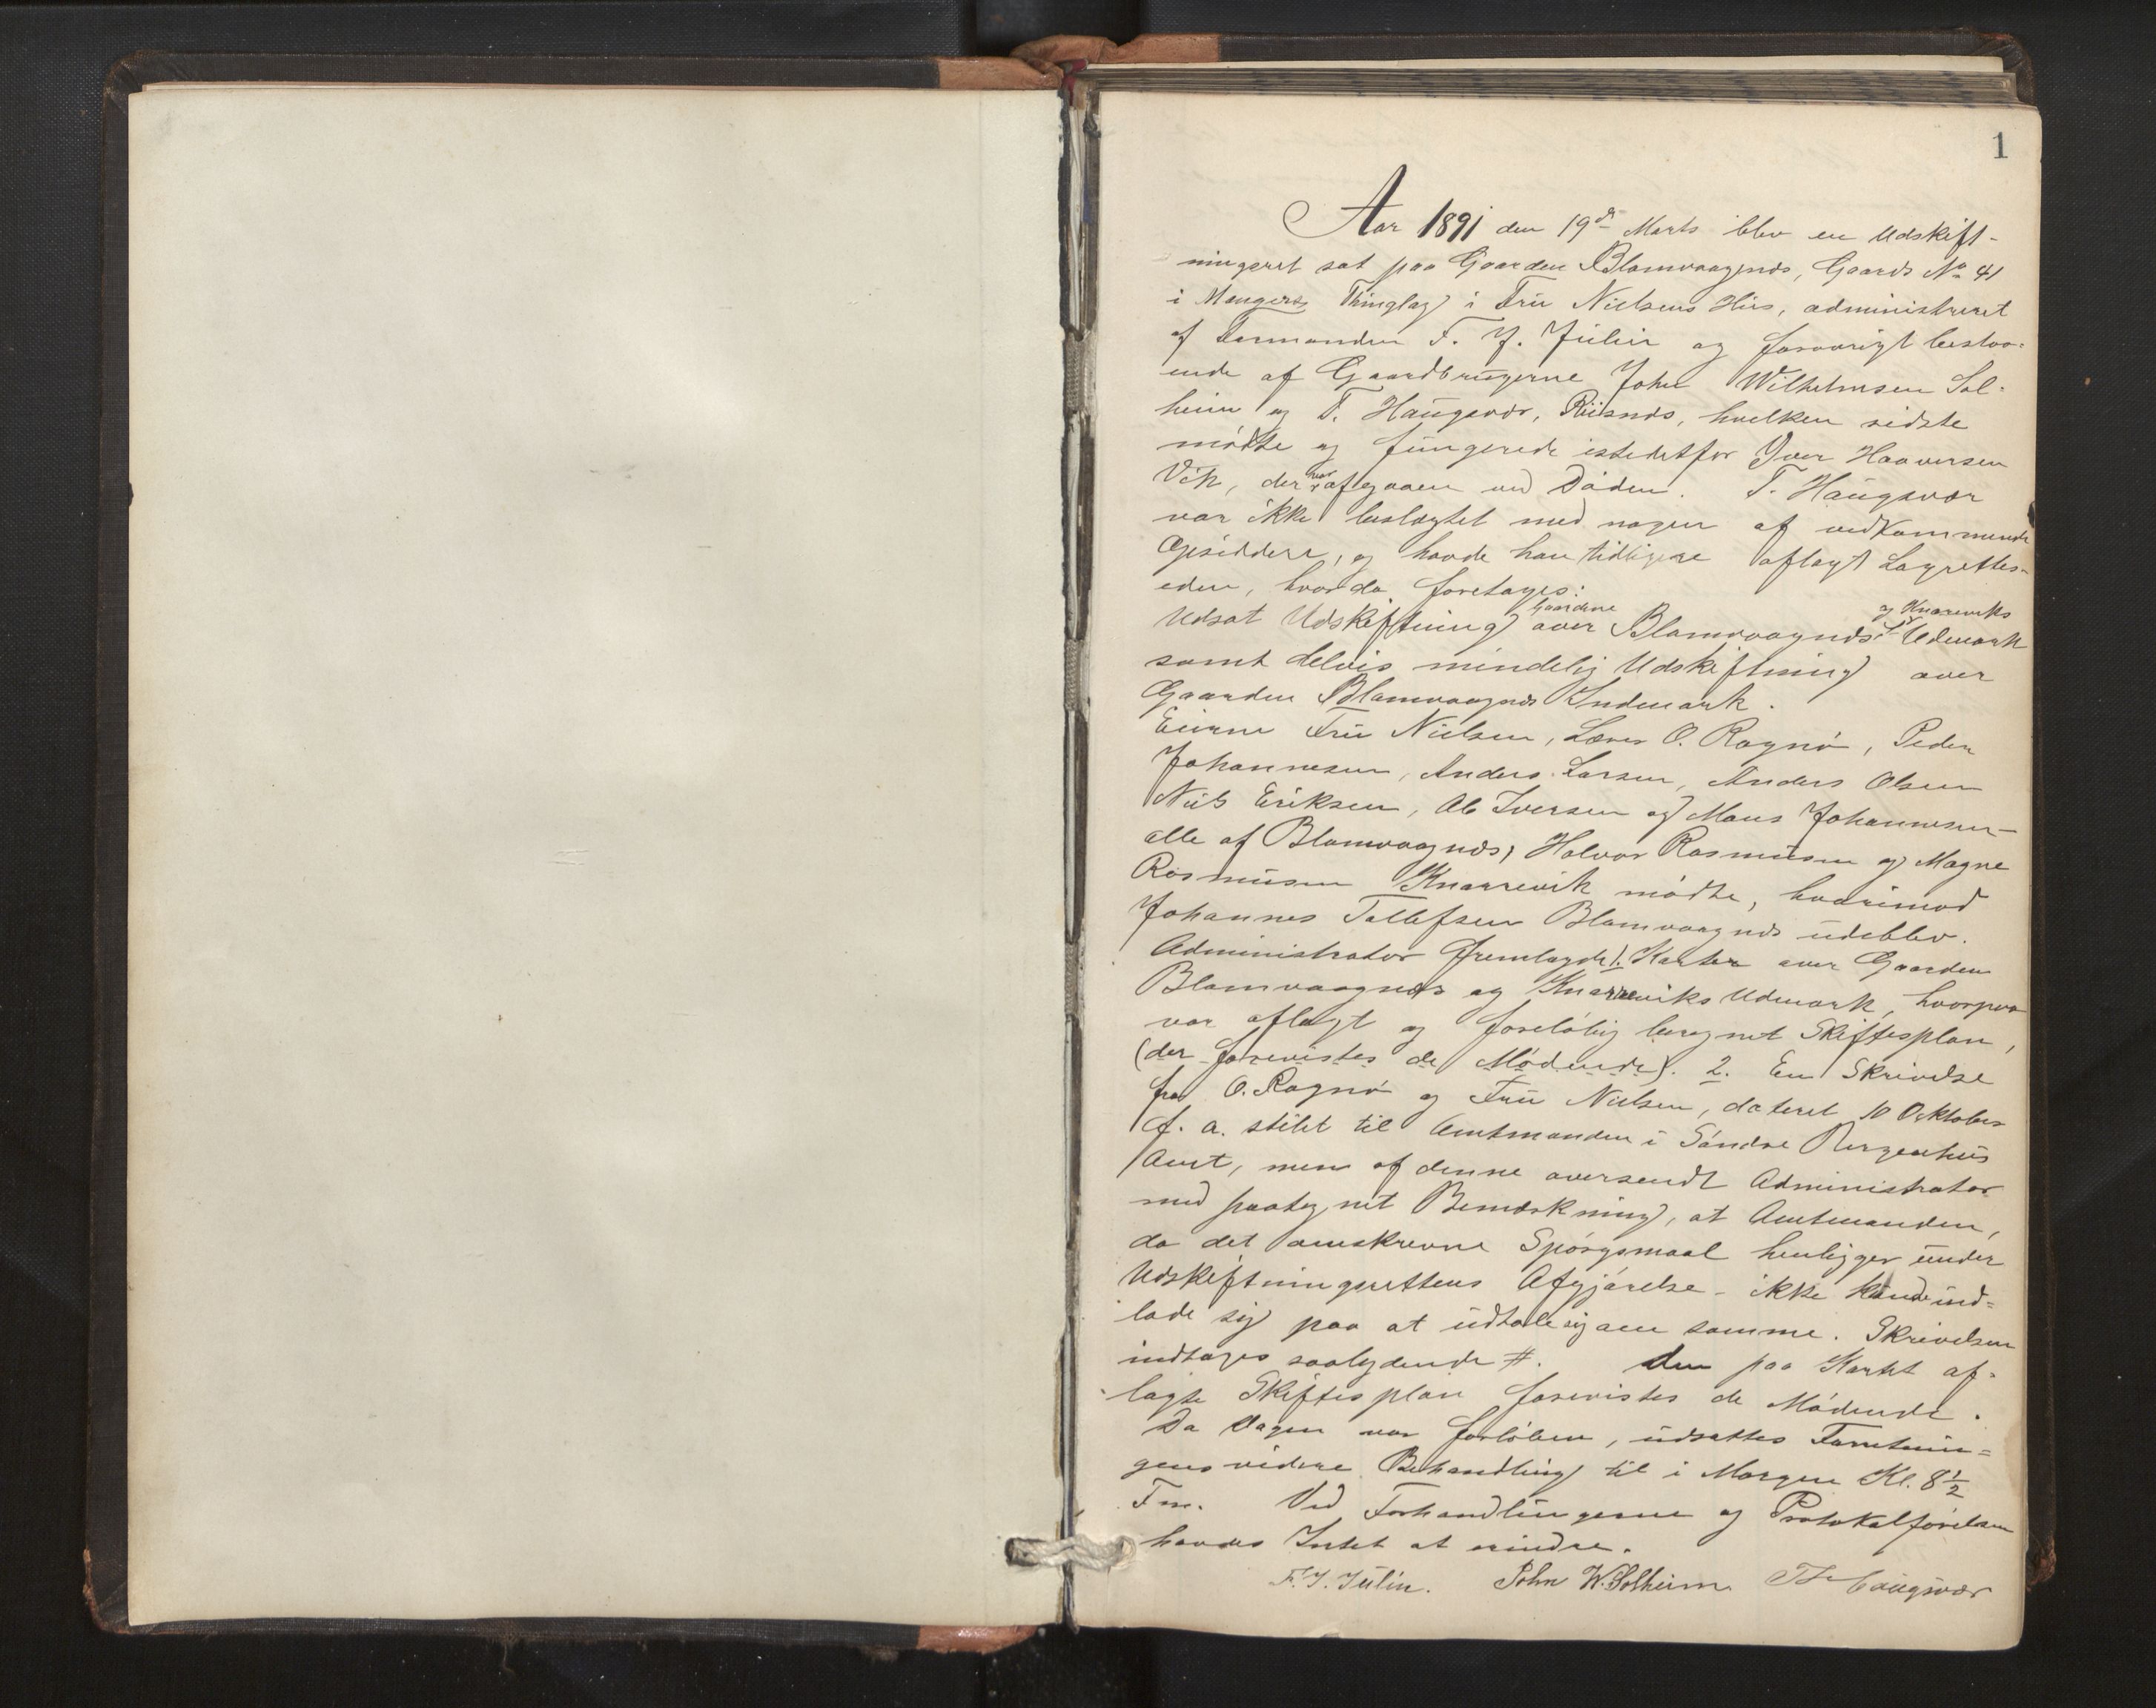 1
Aar 1891 den 19de Marts blev en Udskift-
ningsret sat paa Gaarden Blomvaagnæs, Gaards No 41
i Mangers Thinglag i Fru Nielsens Hus, administreret
af Formanden F. J. Julin og forøvrigt bestaa-
ende af Gaardbrugerne John Wilhelmsen Sol-
heim og T. Haugsvær, Riisnæs, hvilken sidste
mødte og fungerede istedetfor Iver Haaversen
Vik, der har afgaaen ved Døden. T. Haugsvær
var ikke beslægtet med nogen af vedkommende
Opsiddere, og havde han tidligere aflagt Lagrettes-
eden, hvorda foretages:
Udsat Udskiftning over Gaardene Blomvaagnæs og Knarreviks Udmark
samt delvis mindelig Udskiftning over
Gaarden Blomvaagnæs Indmark.
Eierne Fru Nielsen, Lærer O. Ragnø, Peder
Johannesen, Anders Larsen, Anders Olsen
Nils Eriksen, Ole Iversen og Mons Johannesen –
alle af Blomvaagnæs, Halvor Rasmusen og Magne
Rasmusen Knarrevik mødte, hvorimod
Johannes Tollefsen Blomvaagnæs udeblev.
Administrator fremlagde 1. Karter over Gaarden
Blomvaagnæs og Knarreviks Udmark, hvorpaa
var aflagt og foreløbig beregnet Skiftesplan,
(der forevistes de Mødende). 2. En Skrivelse
fra O. Ragnø og Fru Nielsen, dateret 10 Oktober
f. a. stilet til Amtmanden i Søndre Bergenhus
Amt, men af denne oversendt Administrator
med paategnet Bemærkning, at Amtmanden,
da det omskrevne Spørgsmaal henligger under
Udskiftningsrettens Afgjørelse – ikke kunde ind-
lade sig paa at udtale sig om samme. Skrivelsen
indtages saalydende #. Den paa Kartet af-
lagte Skiftesplan forevistes de Mødende.
Da Dagen var forløben, udsattes Forretnin-
gens videre Behandling til i Morgen Kl. 8½
Fm. Ved Forhandlingerne og Protokolførelsen
havdes Intet at erindre.
F. J. Julin. John W. Solheim T Haugsvær